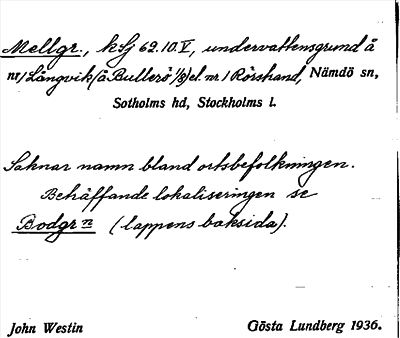 Mellgr., ksj 62.10.V, undervattensgrund å
nr 1 Långvik (å Bullerö 1/8) el. nr. 1 Rörstrand, Nämdö sn,
Sotholms hd, Stockholms l.
Saknar namn bland ortsbefolkningen.
Behäffande lokaliseringen se
Bodgr n (lappens baksida).
John Westin Gösta Lundberg 1936.